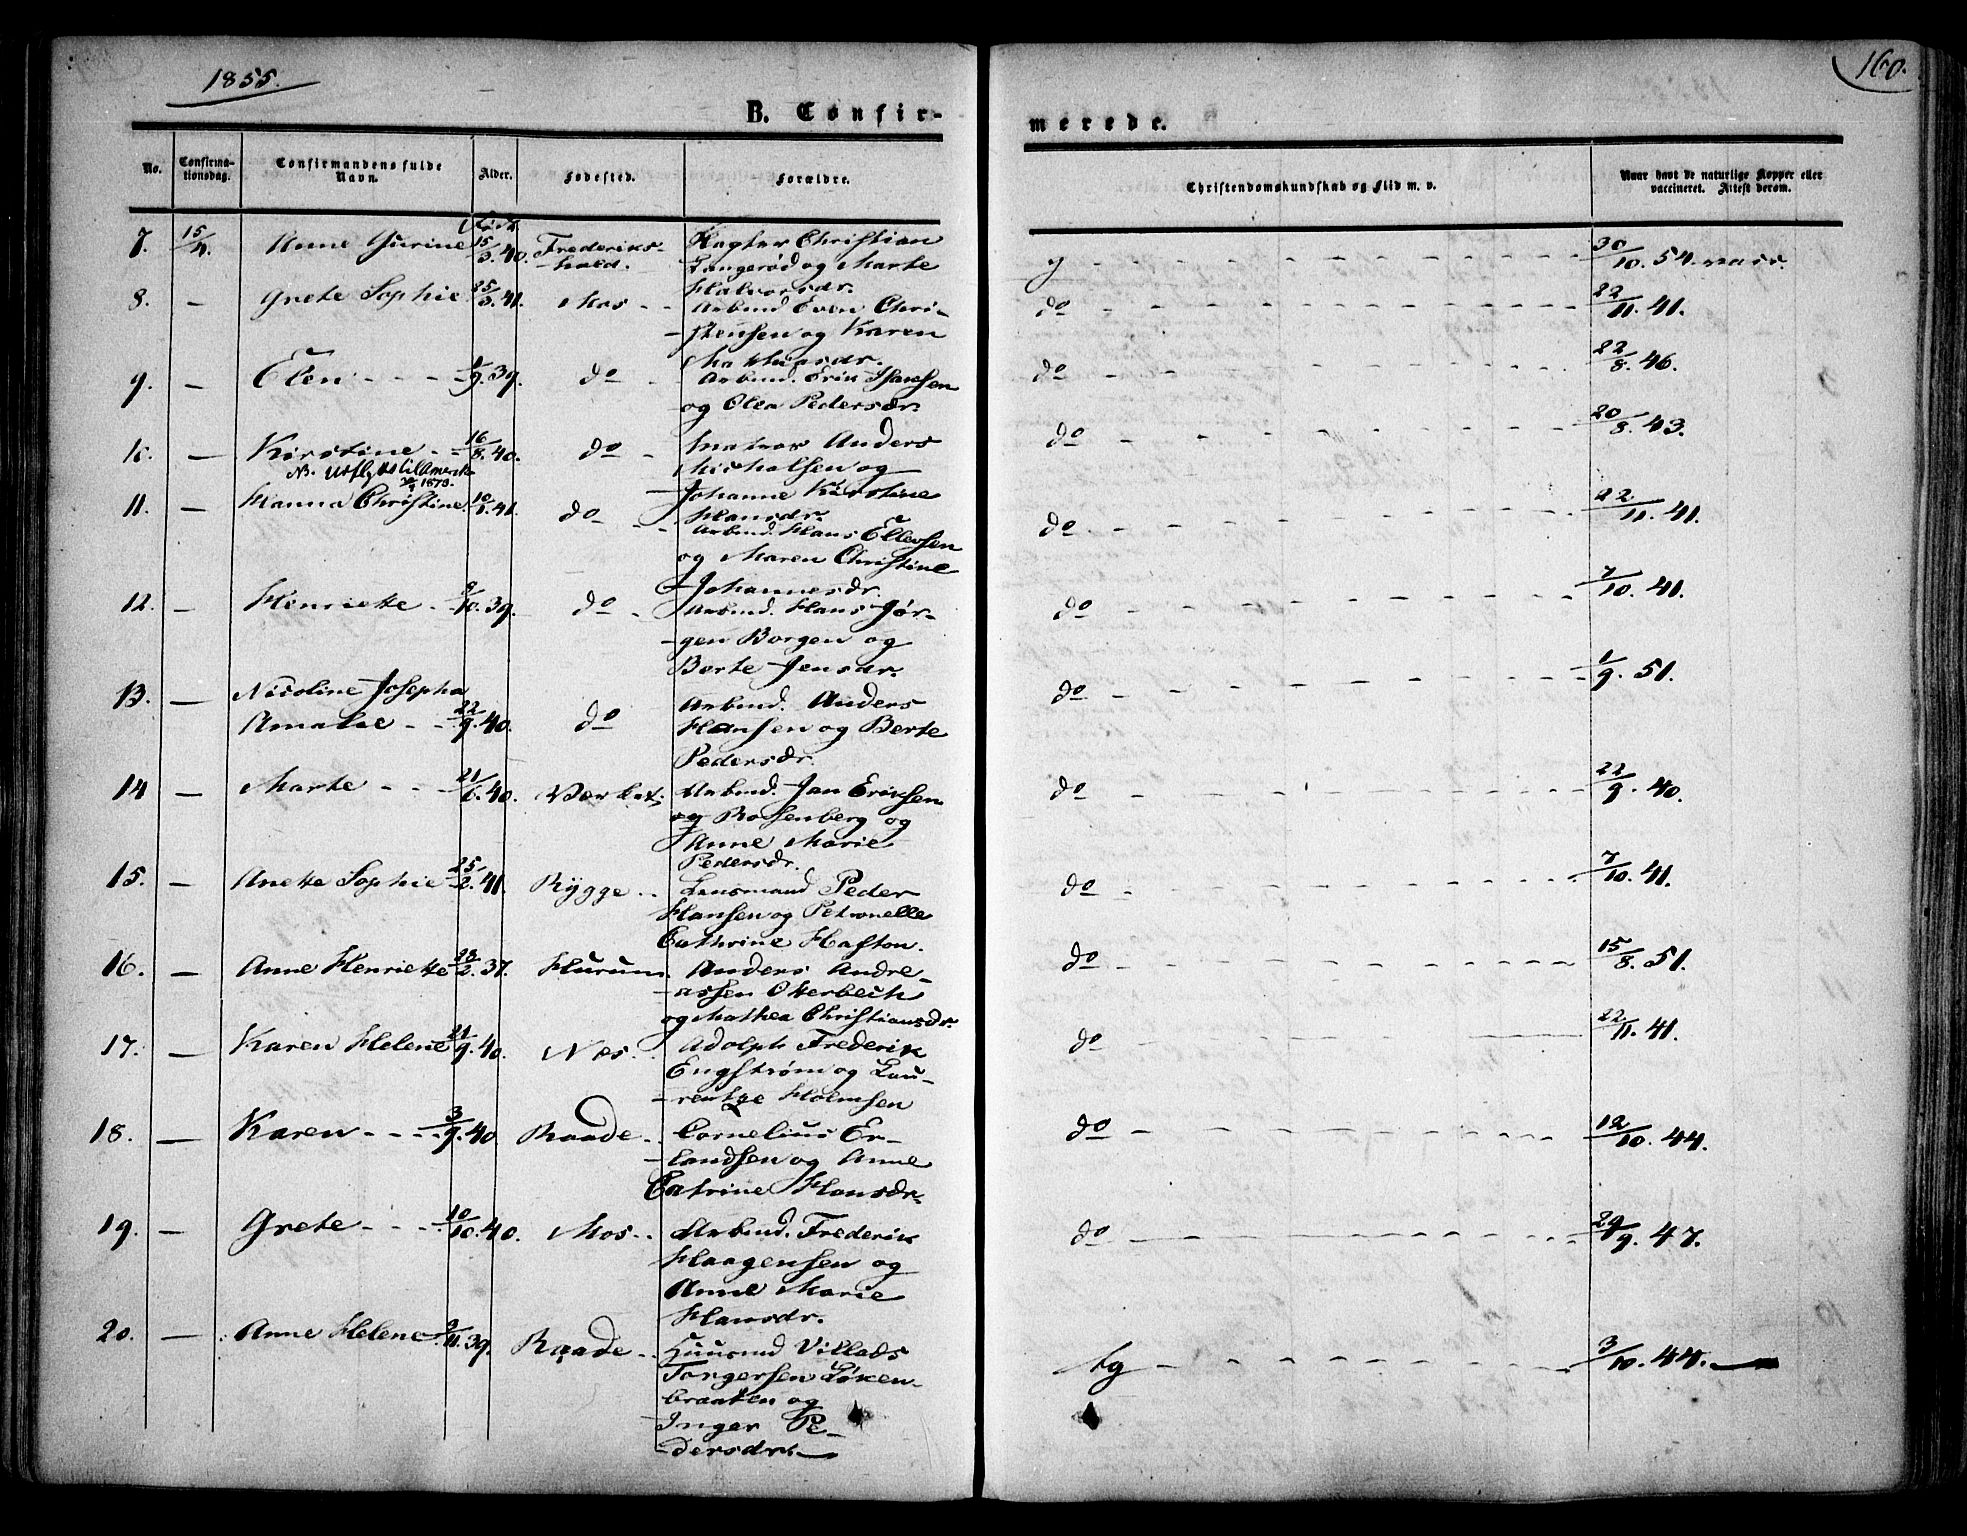 1855.
160.
B. Confir-
merede.
No.
Confirma-
tionsdag.
Confirmandens fulde
Navn.
Alder.
Fødested.
Forældre.
Christendomskundskab og Flid m. v.
Naar havt de naturlige Kopper eller
vaccineret. Attest derom.
7. 15/4. Anne Gurine 15/3. 40. Frederiks- Christian g 30/10. 54.
-hald. Langerød og Marte
Halvorsdr.
8. — Grete Sophie 25/3. 41. Mos Arbmd Even Chri- do 22/11. 41.
-stensen og Karen
Mathiasdr.
9. — Elen 39. do Arbmd. Erik Hansen do 22/8. 46.
og Olea Pedersdr.
10. — Kirstine 16/8. 40. do Matros Anders do 20/8. 43.
NB. Udflyttet til Amerika Michalsen og
1873. Johanne Kirstine
Hansdr.
11. — Hanna Christine 10/1. 41. do Arbmd. Hans Ellefsen do 22/11. 41.
og Maren Christine
Johannesdr.
12. — Henriette 9/10. 39. do Arbmd. Hans Jør- do 7/10. 41.
-gen Borgen og
Berte Jensdr.
13. — Nicoline Josepha Arbmd. Anders do 1/9. 51.
Amalie 22/9. 40. do Hansen og Berte
Pedersdr.
14 — Marte 21/6. 40. Værket Arbmd. Jan Eriksen do 22/9. 40.
og Rosenberg og
Anne Marie
Pedersdr.
15. — Anette Sophie 25/2. 41. Rygge Lensmand Peder do 7/10. 41.
Hansen og Petronelle
Cathrine Hafton.
16. — Anne Henriette 23/2. 37. Hurum Anders Andre- do 15/8. 51.
-assen Otterbech
og Mathea Christiansdr.
17. — Karen Helene 21/9. 40. Næs Adolph Frederik do 22/11. 41.
Engstrøm og Lau-
-rentze Holmsen
18. — Karen 3/9. 40 Raade Cornelius Er- do 12/10. 44.
-landsen og Anne
Catrine Hansdr.
19. — Grete 10/10. 40. Mos Arbmd. Frederik do 29/9. 47.
Haagensen og
Anne Marie
Hansdr.
20. — Anne Helene 9/11. 39. Raade Huusmd Villads tg 3/10. 44.
Torgersen Løken-
braaten og
Inger Pe-
-dersdr.